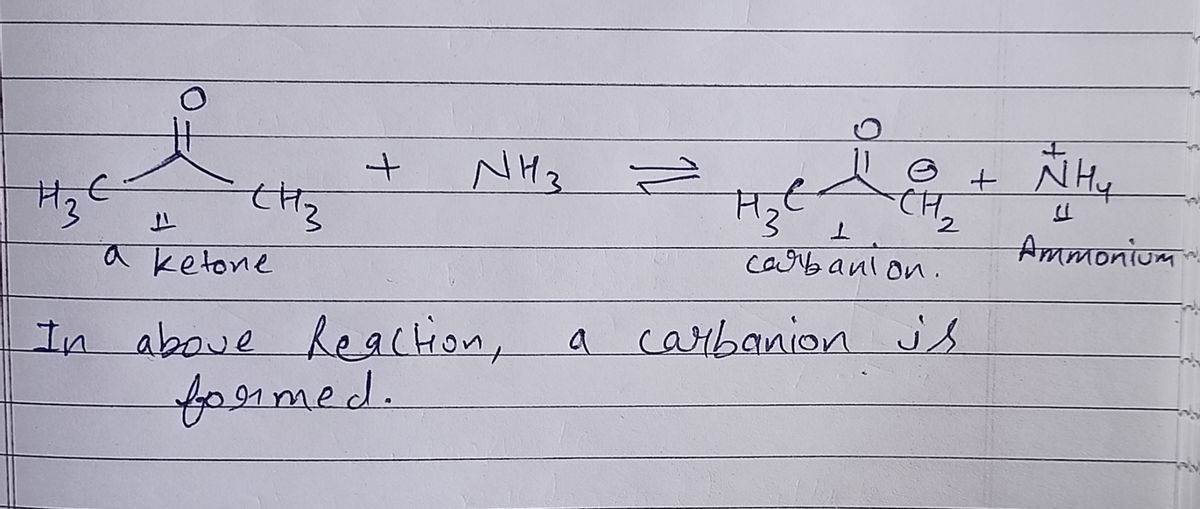 O O
H3C CH3 + NH3 ⇌ H3C CH2 ⊖ + N+H4
a ketone carbanion. Ammonium
In above Reaction, a carbanion is
formed.